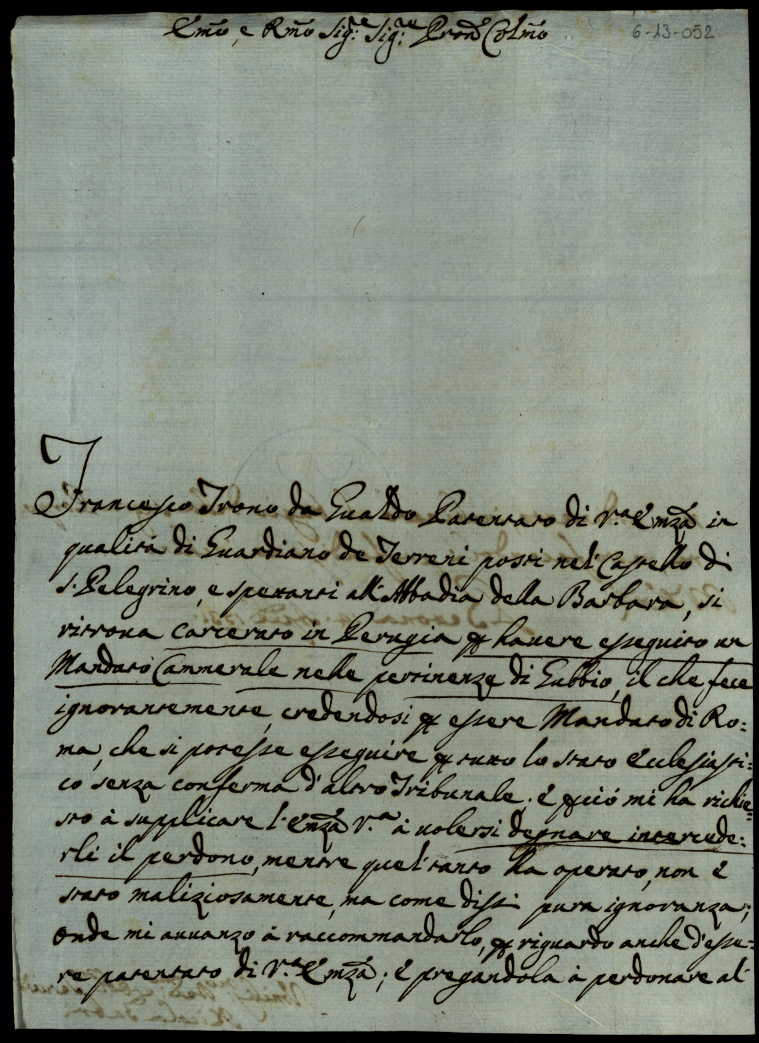 Emõ, e Rmõ Sig.re Sig.re Pron̄ Colmõ
6-13-052
Francesco Trono da Gualdo Patentato di V.ra Emzã in
qualità di Guardiano de Terreni posti nel Castello di
S. Pelegrino, e spettanti all'Abbadia della Barbara, si
ritrova carcerato in Perugia ꝑ havere esseguito un
Mandato Cammerale nelle pertinenze di Gubbio, il che fece
ignorantemente, credendosi ꝑ essere Mandato di Ro:
ma, che si potesse esseguire ꝑ tutto lo stato Ecclesiasti:
co senza conferma d'altro Tribunale. E ꝑciò mi ha richie:
sto à supplicare l'Emzã V.ra à volersi degnare intercede:
rli il perdono, mentre quel tanto ha operato, non è
stato maliziosamente, ma come dissi pura ignoranza;
Onde mi avvanzo à raccommandarlo, ꝑ riguardo anche d'esse:
re patentato di V.ra Emzã; E pregandola à perdonare al